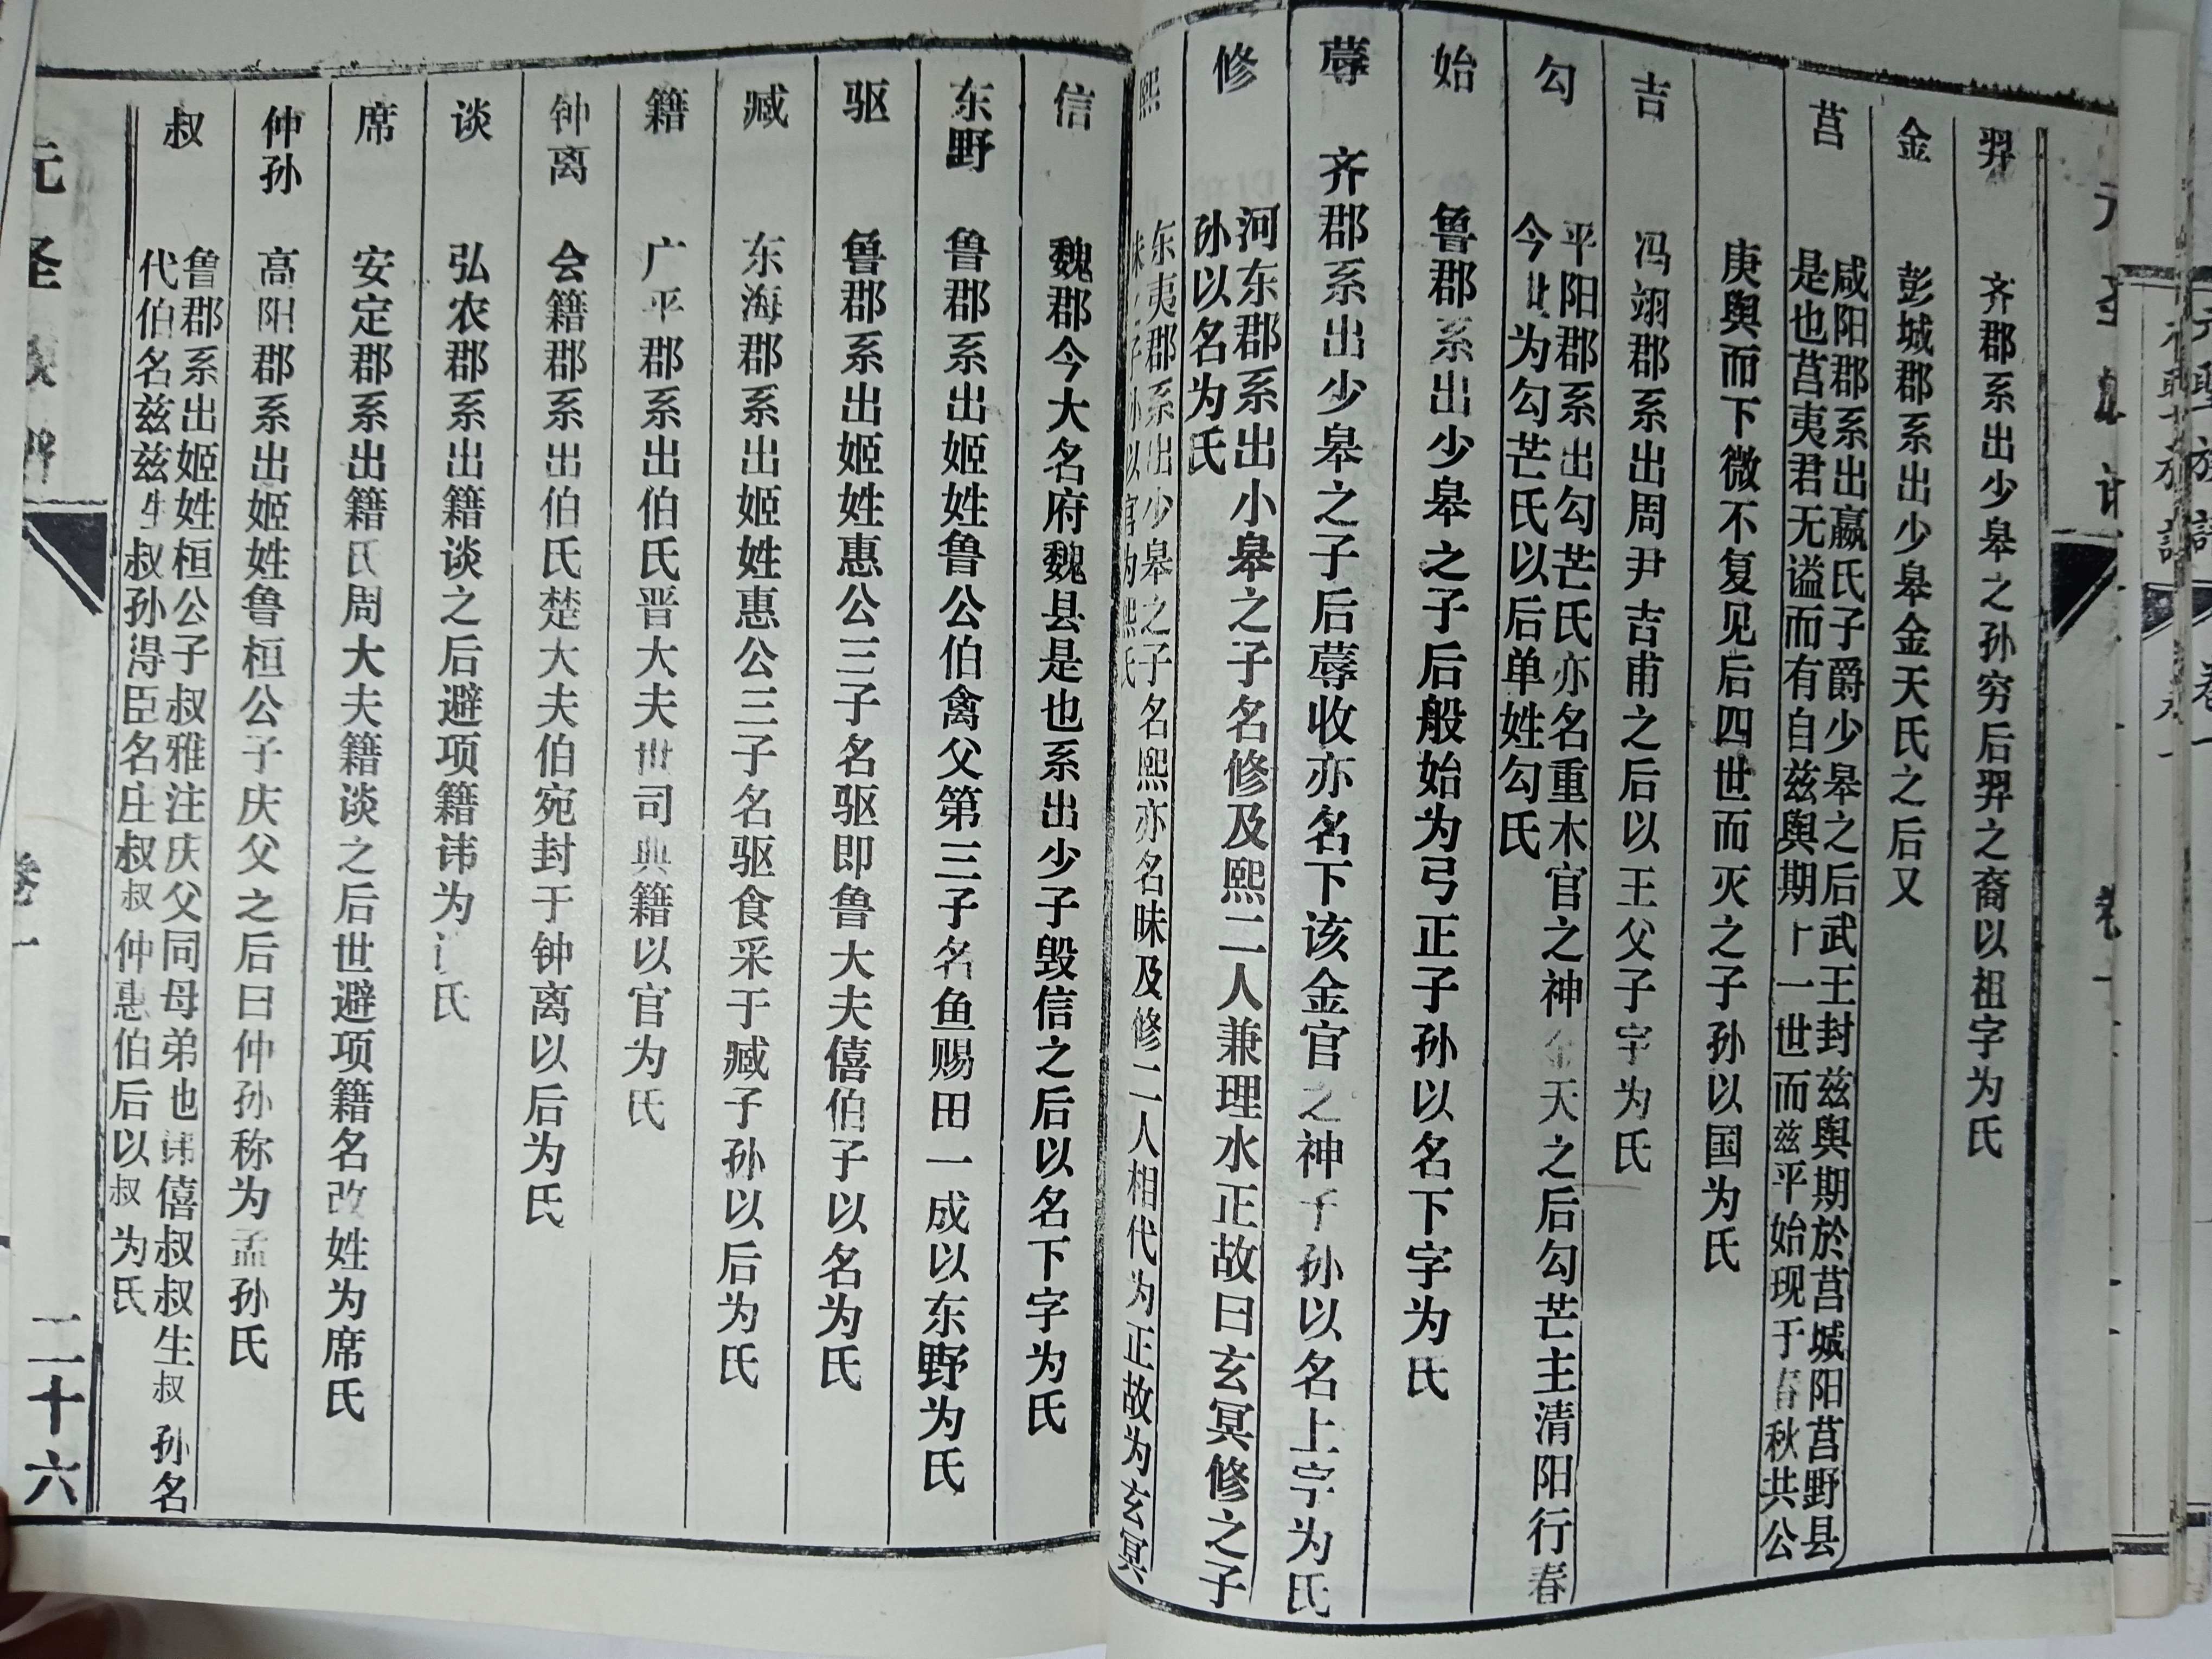 羿 齐郡系出少皋之孙穷后羿之裔以祖字为氏
金 彭城郡系出少皋金天氏之后又
莒 咸阳郡系出嬴氏子爵少皋之后武王封兹舆期於莒城阳莒野县
是也莒夷君无谥而有自兹舆期十一世而兹平始现于春秋共公
庚舆而下微不复见后四世而灭之子孙以国为氏
吉 冯翊郡系出周尹吉甫之后以王父子字为氏
勾 平阳郡系出勾芒氏亦名重木官之神金天之后勾芒主清阳行春
今此为勾芒氏以后单姓勾氏
始 鲁郡系出少皋之子后般始为弓正子孙以名下字为氏
蓐 齐郡系出少皋之子后蓐收亦名下该金官之神子孙以名上字为氏
修 河东郡系出小皋之子名修及熙二人兼理水正故曰玄冥修之子
孙以名为氏
熙 东夷郡系出少皋之子名熙亦名昧及修二人相代为正故为玄冥
昧之子孙以官为熙氏
信 魏郡今大名府魏县是也系出少子毁信之后以名下字为氏
东野 鲁郡系出姬姓鲁公伯禽父第三子名鱼赐田一成以东野为氏
驱 鲁郡系出姬姓惠公三子名驱即鲁大夫僖伯子以名为氏
臧 东海郡系出姬姓惠公三子名驱食采于臧子孙以后为氏
籍 广平郡系出伯氏晋大夫世司典籍以官为氏
钟离 会籍郡系出伯氏楚大夫伯宛封于钟离以后为氏
谈 弘农郡系出籍谈之后避项籍讳为谈氏
席 安定郡系出籍氏周大夫籍谈之后世避项籍名改姓为席氏
仲孙 高阳郡系出姬姓鲁桓公子庆父之后曰仲孙称为孟孙氏
叔 鲁郡系出姬姓桓公子叔雅注庆父同母弟也讳僖叔叔生叔孙名
代伯名兹兹生叔孙得臣名庄叔叔仲惠伯后以叔为氏
卷一
二十六